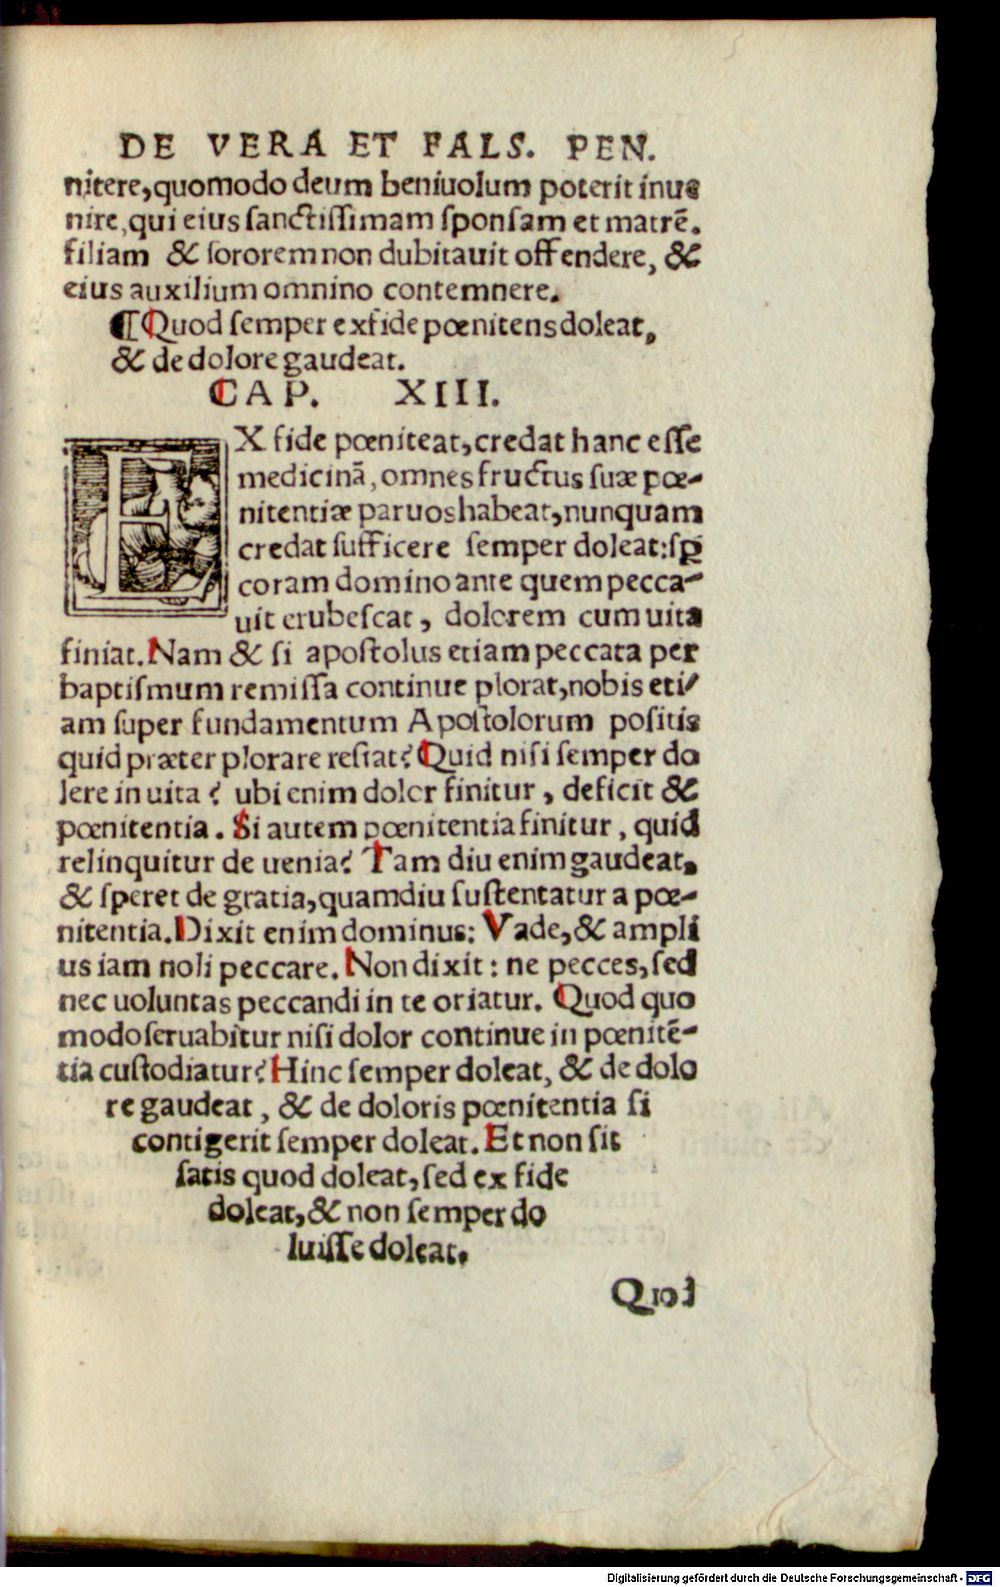 DE VERA ET FALS. PEN.
nitere,quomodo deum beniuolum poterit inue
nire,qui eius sanctissimam sponsam et matrē.
filiam & sororem non dubitauit offendere, &
eius auxilium omnino contemnere.
¶Quod semper ex fide pœnitens doleat,
& de dolore gaudeat.
CAP. XIII.
EX fide pœniteat,credat hanc esse
medicinā, omnes fructus suæ pœ-
nitentiæ paruos habeat,nunquam
credat sufficere semper doleat:sꝑ
coram domino ante quem pecca-
uit erubescat, dolorem cum uita
finiat. Nam & si apostolus etiam peccata per
baptismum remissa continue plorat,nobis eti/
am super fundamentum Apostolorum positis
quid præter plorare restat? Quid nisi semper do
lere in uita? ubi enim dolor finitur, deficit &
pœnitentia. Si autem pœnitentia finitur, quid
relinquitur de uenia? Tam diu enim gaudeat,
& speret de gratia,quamdiu sustentatur a pœ-
nitentia. Dixit enim dominus: Vade,& ampli
us iam noli peccare. Non dixit: ne pecces,sed
nec uoluntas peccandi in te oriatur. Quod quo
modo seruabitur nisi dolor continue in pœnitē-
tia custodiatur? Hinc semper doleat, & de dolo
re gaudeat, & de doloris pœnitentia si
contigerit semper doleat. Et non sit
satis quod doleat,sed ex fide
doleat,& non semper do
luisse doleat.
Quod
Digitalisierung gefördert durch die Deutsche Forschungsgemeinschaft - DFG